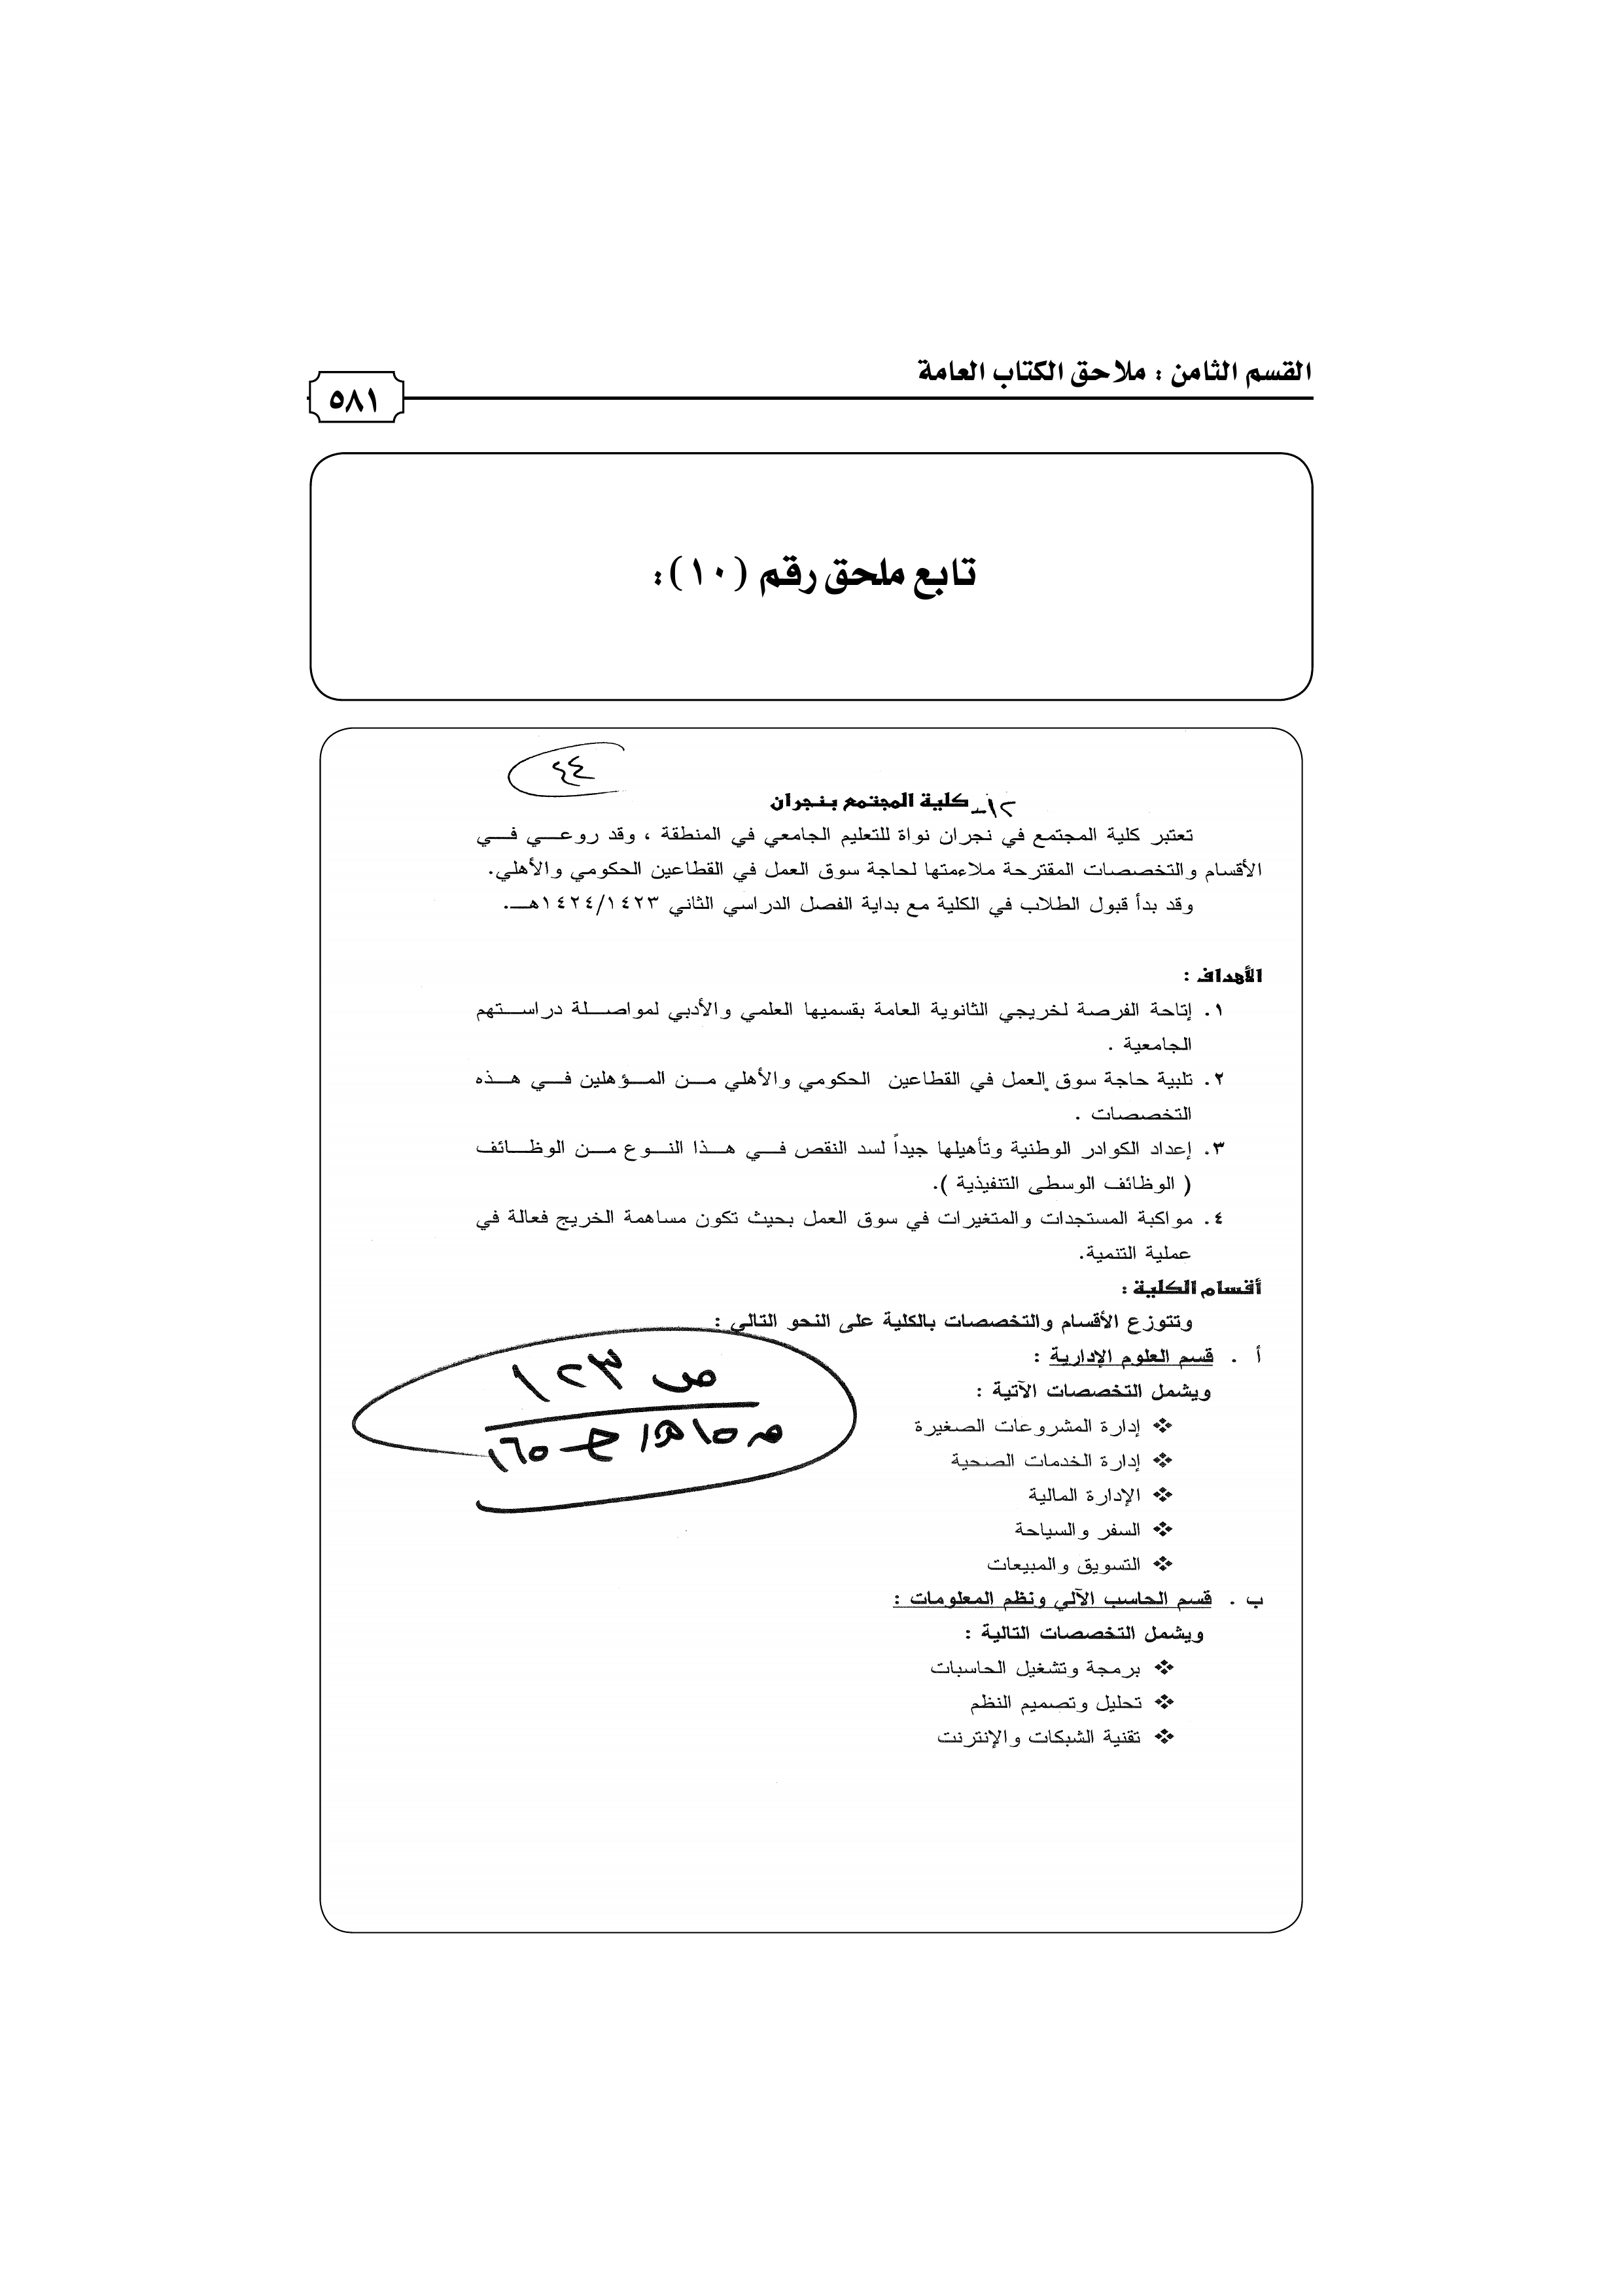 القسم الثامن : ملاحق الكتاب العامة
٥٨١
تابع ملحق رقم (١٠):
٤٤
١٢- كلية المجتمع بنجران
تعتبر كلية المجتمع في نجران نواة للتعليم الجامعي في المنطقة ، وقد روعي في
الأقسام والتخصصات المقترحة ملاءمتها لحاجة سوق العمل في القطاعين الحكومي والأهلي.
وقد بدأ قبول الطلاب في الكلية مع بداية الفصل الدراسي الثاني ١٤٢٤/١٤٢٣هـ.
الأهداف :
١. إتاحة الفرصة لخريجي الثانوية العامة بقسميها العلمي والأدبي لمواصلة دراستهم
الجامعية .
٢. تلبية حاجة سوق العمل في القطاعين الحكومي والأهلي من المؤهلين في هذه
التخصصات .
٣. إعداد الكوادر الوطنية وتأهيلها جيداً لسد النقص في هذا النوع من الوظائف
( الوظائف الوسطى التنفيذية ).
٤. مواكبة المستجدات والمتغيرات في سوق العمل بحيث تكون مساهمة الخريج فعالة في
عملية التنمية.
أقسام الكلية :
وتتوزع الأقسام والتخصصات بالكلية على النحو التالي :
أ . قسم العلوم الإدارية :
ص ١٢٣
ويشمل التخصصات الآتية :
❖ إدارة المشروعات الصغيرة
❖ إدارة الخدمات الصحية
❖ الإدارة المالية
❖ السفر والسياحة
❖ التسويق والمبيعات
ب . قسم الحاسب الآلي ونظم المعلومات :
ويشمل التخصصات التالية :
❖ برمجة وتشغيل الحاسبات
❖ تحليل وتصميم النظم
❖ تقنية الشبكات والإنترنت